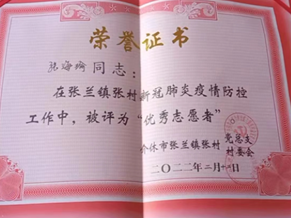 荣誉证书
同志：
在张兰镇张村新冠肺炎疫情防控
工作中，被评为“优秀志愿者”
介休市张兰镇张村 党总支
村委会
二〇二二年二月十一日